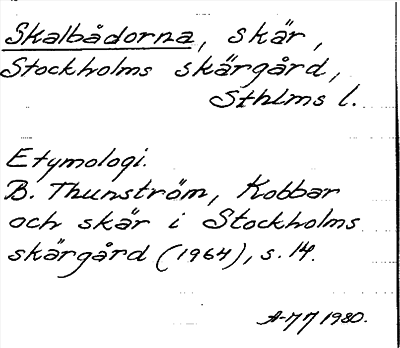 Skalbådorna, skär,
Stockholms skärgård,
Sthlms l.
Etymologi.
B. Thunström, Kobbar
och skär i Stockholms
skärgård (1964), s. 14.
1980.